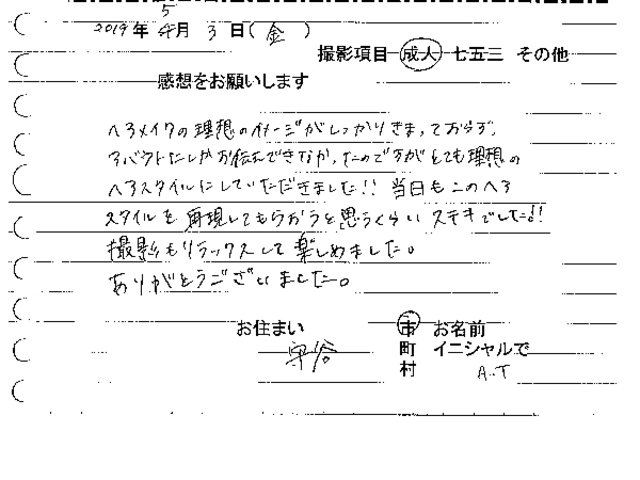 2019年 5月 3日(金)
撮影項目 成人 七五三 その他
感想をお願いします
ヘアメイクの理想のイメージがしっかりきまっておらず、
アバウトにしかお伝えできなかったのですがとても理想の
ヘアスタイルにしていただきました!! 当日もこのヘア
スタイルを再現してもらおうと思うくらいステキでした!!
撮影もリラックスして楽しめました。
ありがとうございました。
お住まい 守谷 市 お名前
町 イニシャルで
村 A.T